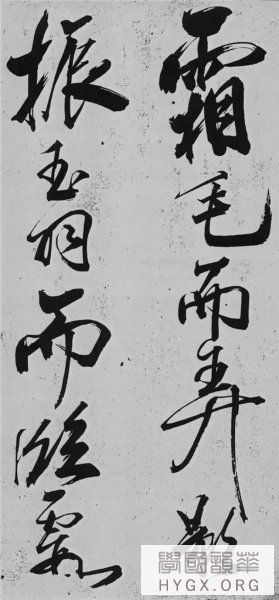 霜毛而弄影
振玉羽而臨霞
華韻國學
HYGX.ORG